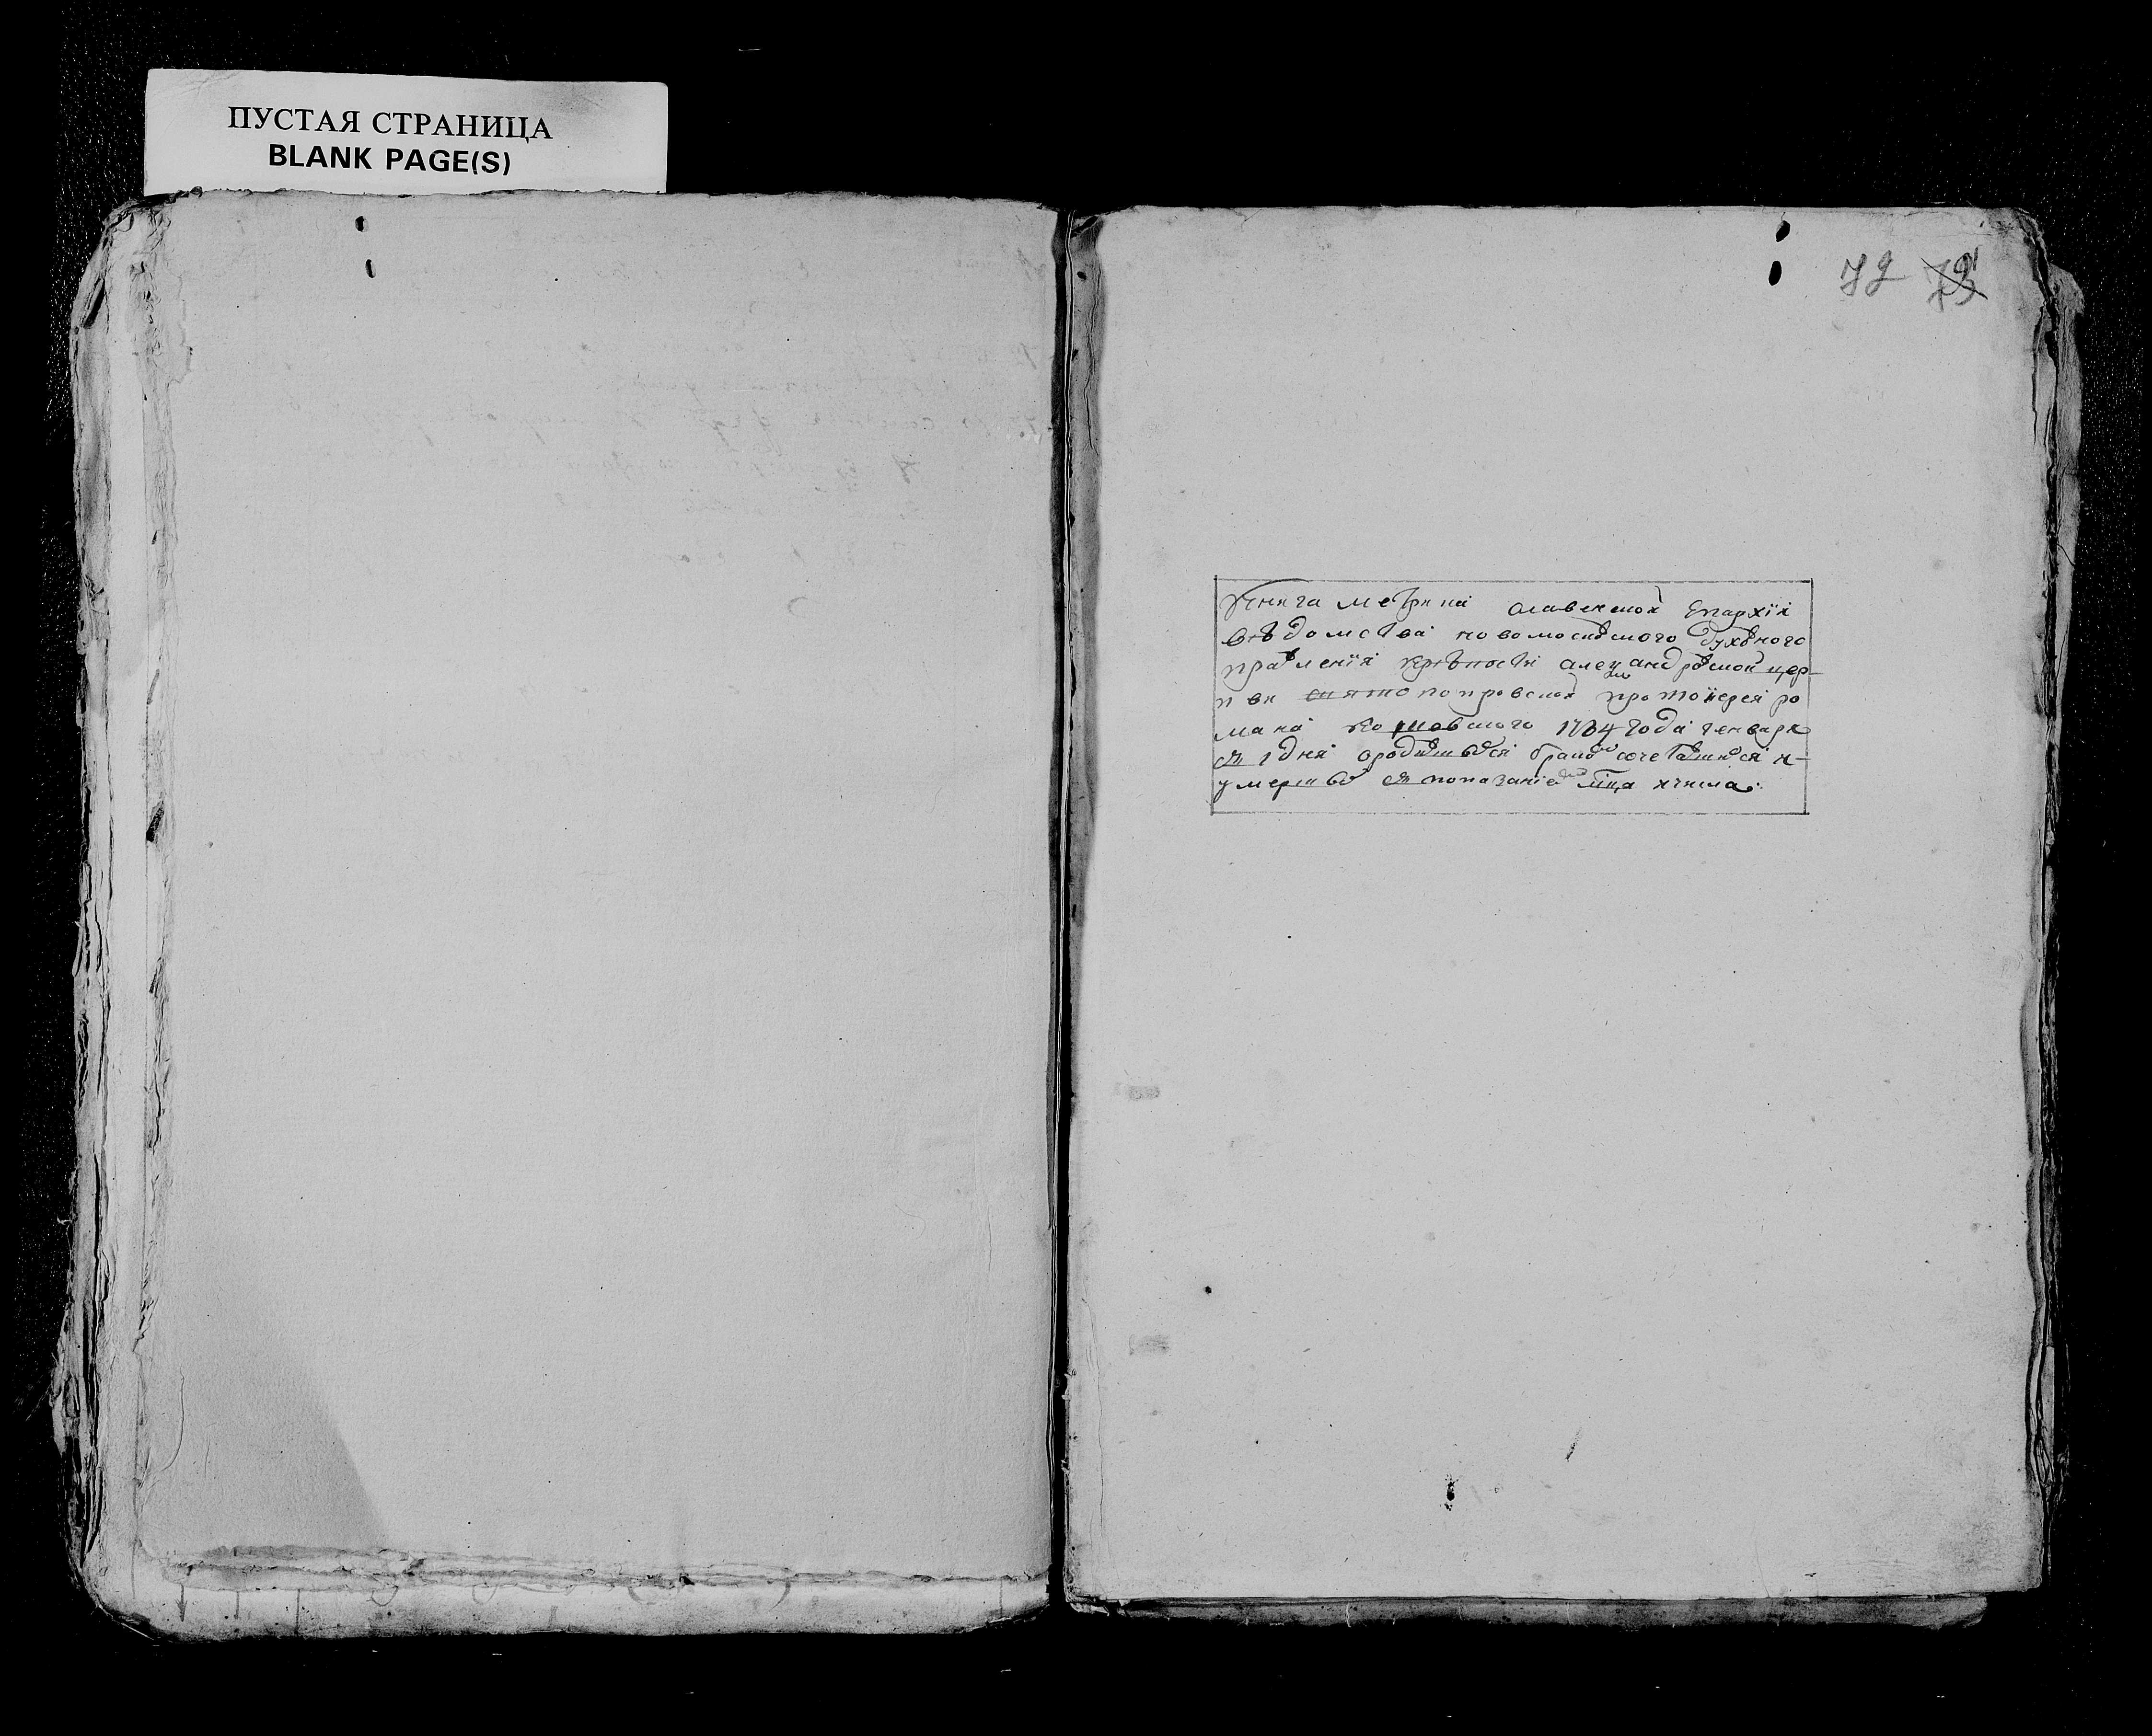 ПУСТАЯ СТРАНИЦА
BLANK PAGE(S)
72 73
Книга метрика славенской Епархіи
вѣдомства новомосковского духовного
правленія крѣпости александровской цер-
кви святопокровской протоіерея ро
мана 1784 года генваря
с 1 дня о родившихся браком сочетавшихся и
умерших с показаніем мца и числа